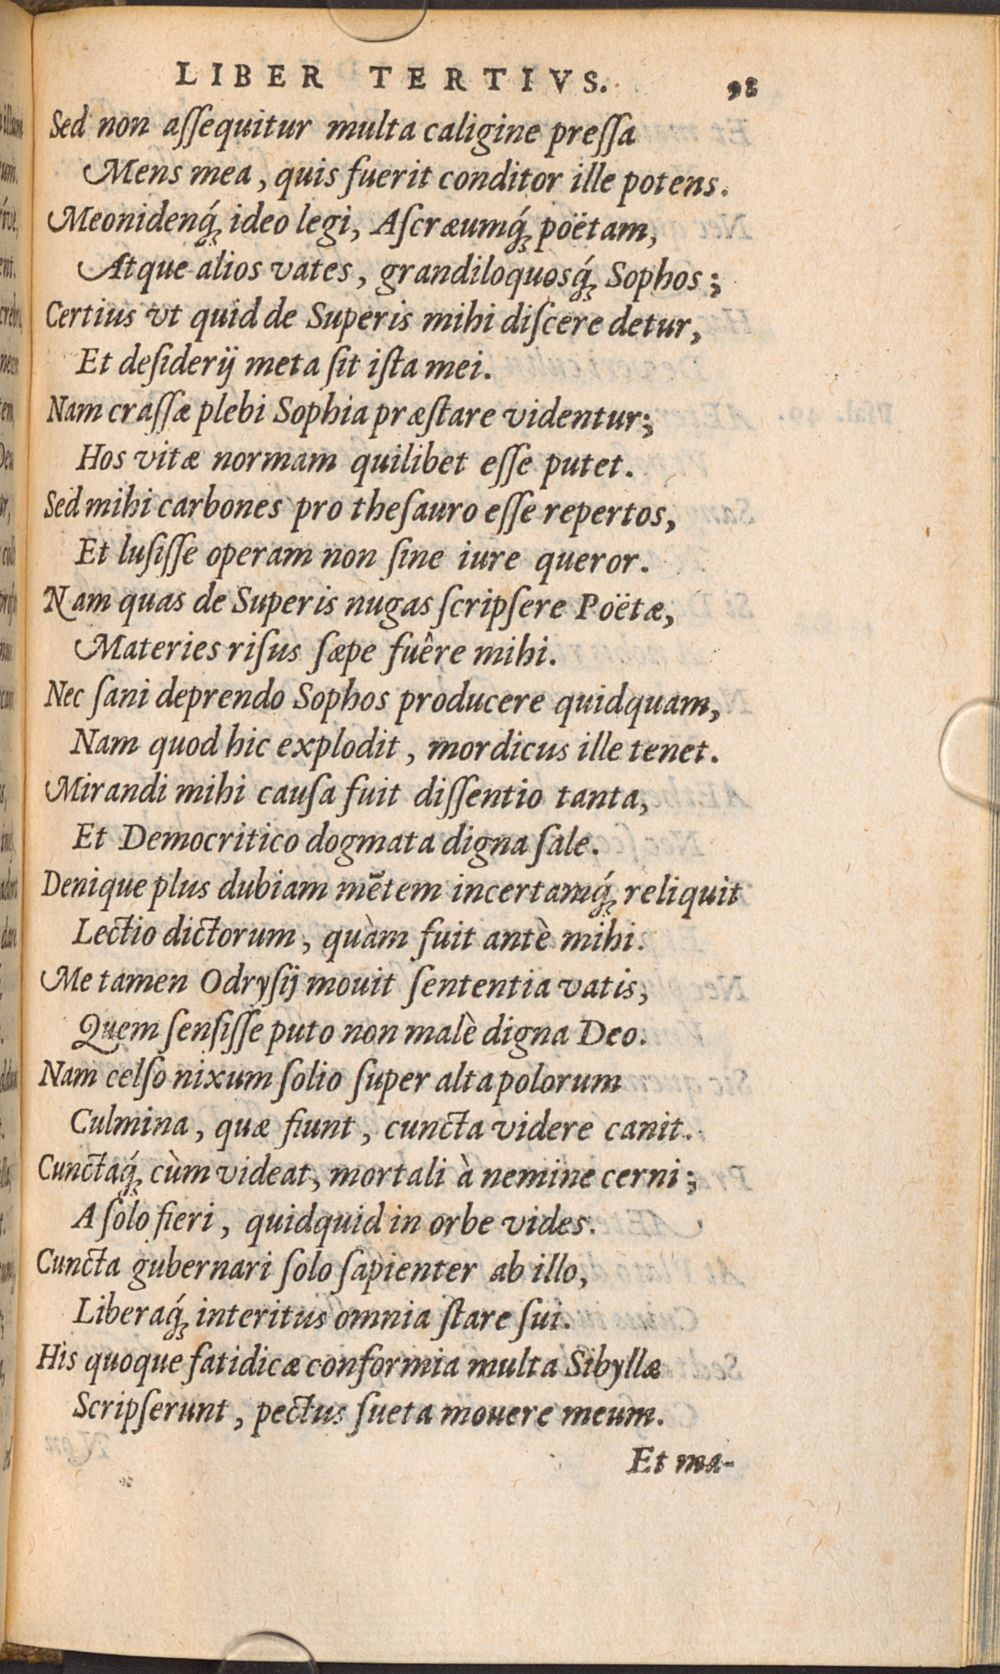 LIBER TERTIVS. 98
Sed non aſſequitur multa caligine preſſa
Mens mea, quis fuerit conditor ille potens.
Meonidenq́ꝫ ideo legi, Aſcræumq́ꝫ poëtam,
Atque alios vates, grandiloquosq́ꝫ Sophos;
Certius vt quid de Superis mihi diſcere detur,
Et deſiderij meta ſit iſta mei.
Nam craſſæ plebi Sophia præſtare videntur;
Hos vitæ normam quilibet eſſe putet.
Sed mihi carbones pro theſauro eſſe repertos,
Et luſiſſe operam non ſine iure queror.
Nam quas de Superis nugas ſcripſere Poëtæ,
Materies riſus ſæpe fuêre mihi.
Nec ſani deprendo Sophos producere quidquam,
Nam quod hic explodit, mordicus ille tenet.
Mirandi mihi cauſa fuit diſſentio tanta,
Et Democritico dogmata digna ſale.
Denique plus dubiam mētem incertamq́ꝫ reliquit
Lectio dictorum, quàm fuit antè mihi.
Me tamen Odryſij mouit ſententia vatis,
Quem ſenſiſſe puto non malè digna Deo.
Nam celſo nixum ſolio ſuper alta polorum
Culmina, quæ fiunt, cuncta videre canit.
Cunctaq́ꝫ cùm videat, mortali à nemine cerni;
A ſolo fieri, quidquid in orbe vides.
Cuncta gubernari ſolo ſapienter ab illo,
Liberaq́ꝫ interitus omnia ſtare ſui.
His quoque fatidicæ conformia multa Sibyllæ
Scripſerunt, pectus ſueta mouere meum.
Et ma-